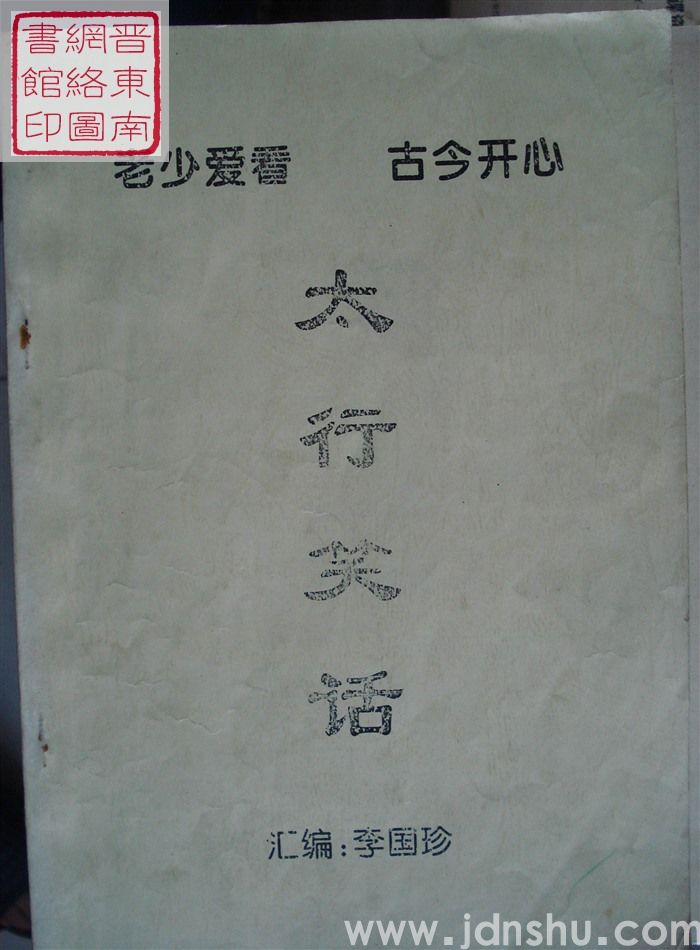 晋東南
網絡圖
書館印
老少爱看 古今开心
太
行
笑
话
汇编：李国珍
www.jdnshu.com